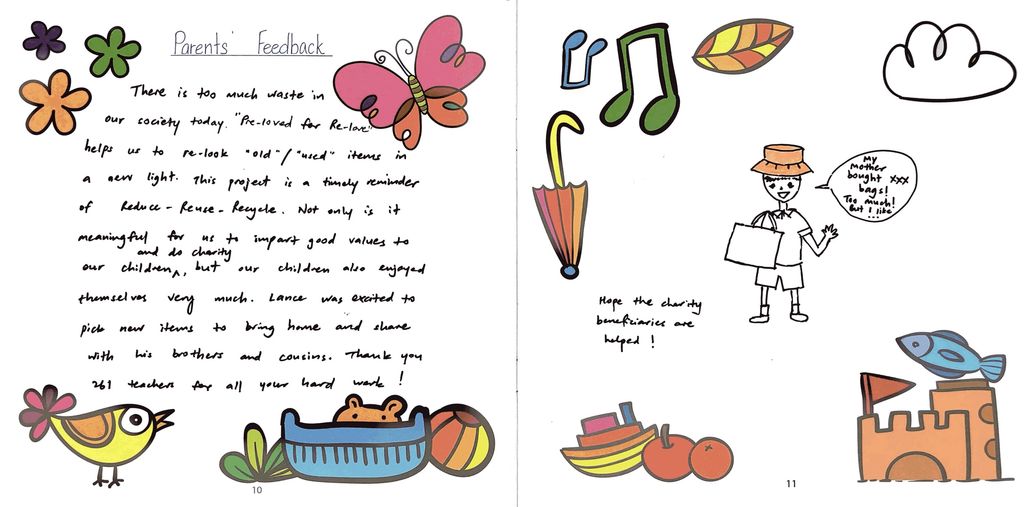 Parents' Feedback
There is too much waste in
our society today. "Pre-loved for Re-love"
helps us to re-look "old"/"used" items in
a new light. This project is a timely reminder
of Reduce-Reuse-Recycle. Not only is it
meaningful for us to impart good values to
and do charity
our children^, but our children also enjoyed
themselves very much. Lance was excited to
pick new items to bring home and share
with his brothers and cousins. Thank you
261 teachers for all your hard work!
10
My
mother
bought xxx
bags!
Too much!
But I like
...
Hope the charity
beneficiaries are
helped!
11